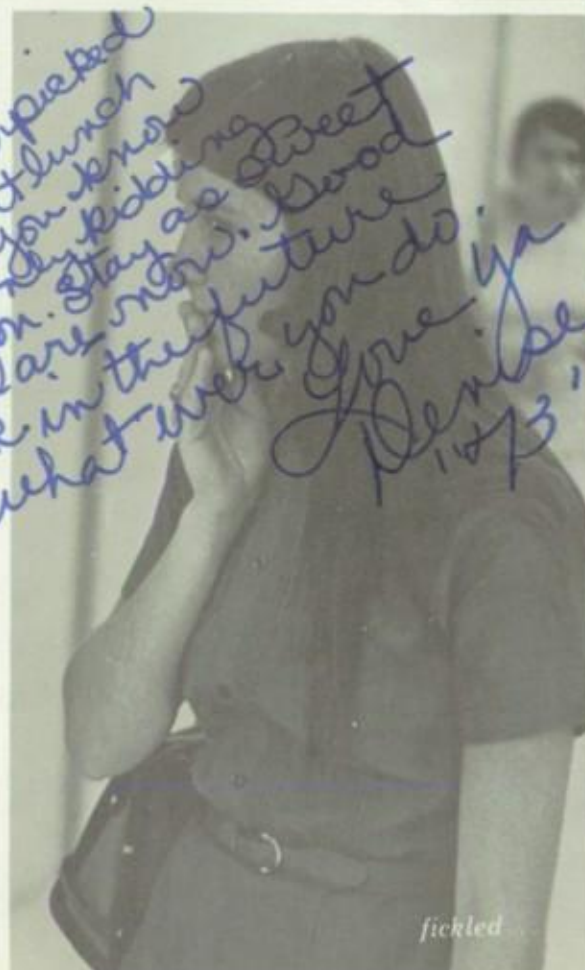 picked
lunch
you know
kidding
Stay as sweet
are now. Good
in the future
what ever you do.
Love ya
Denise
'73'
fickled...